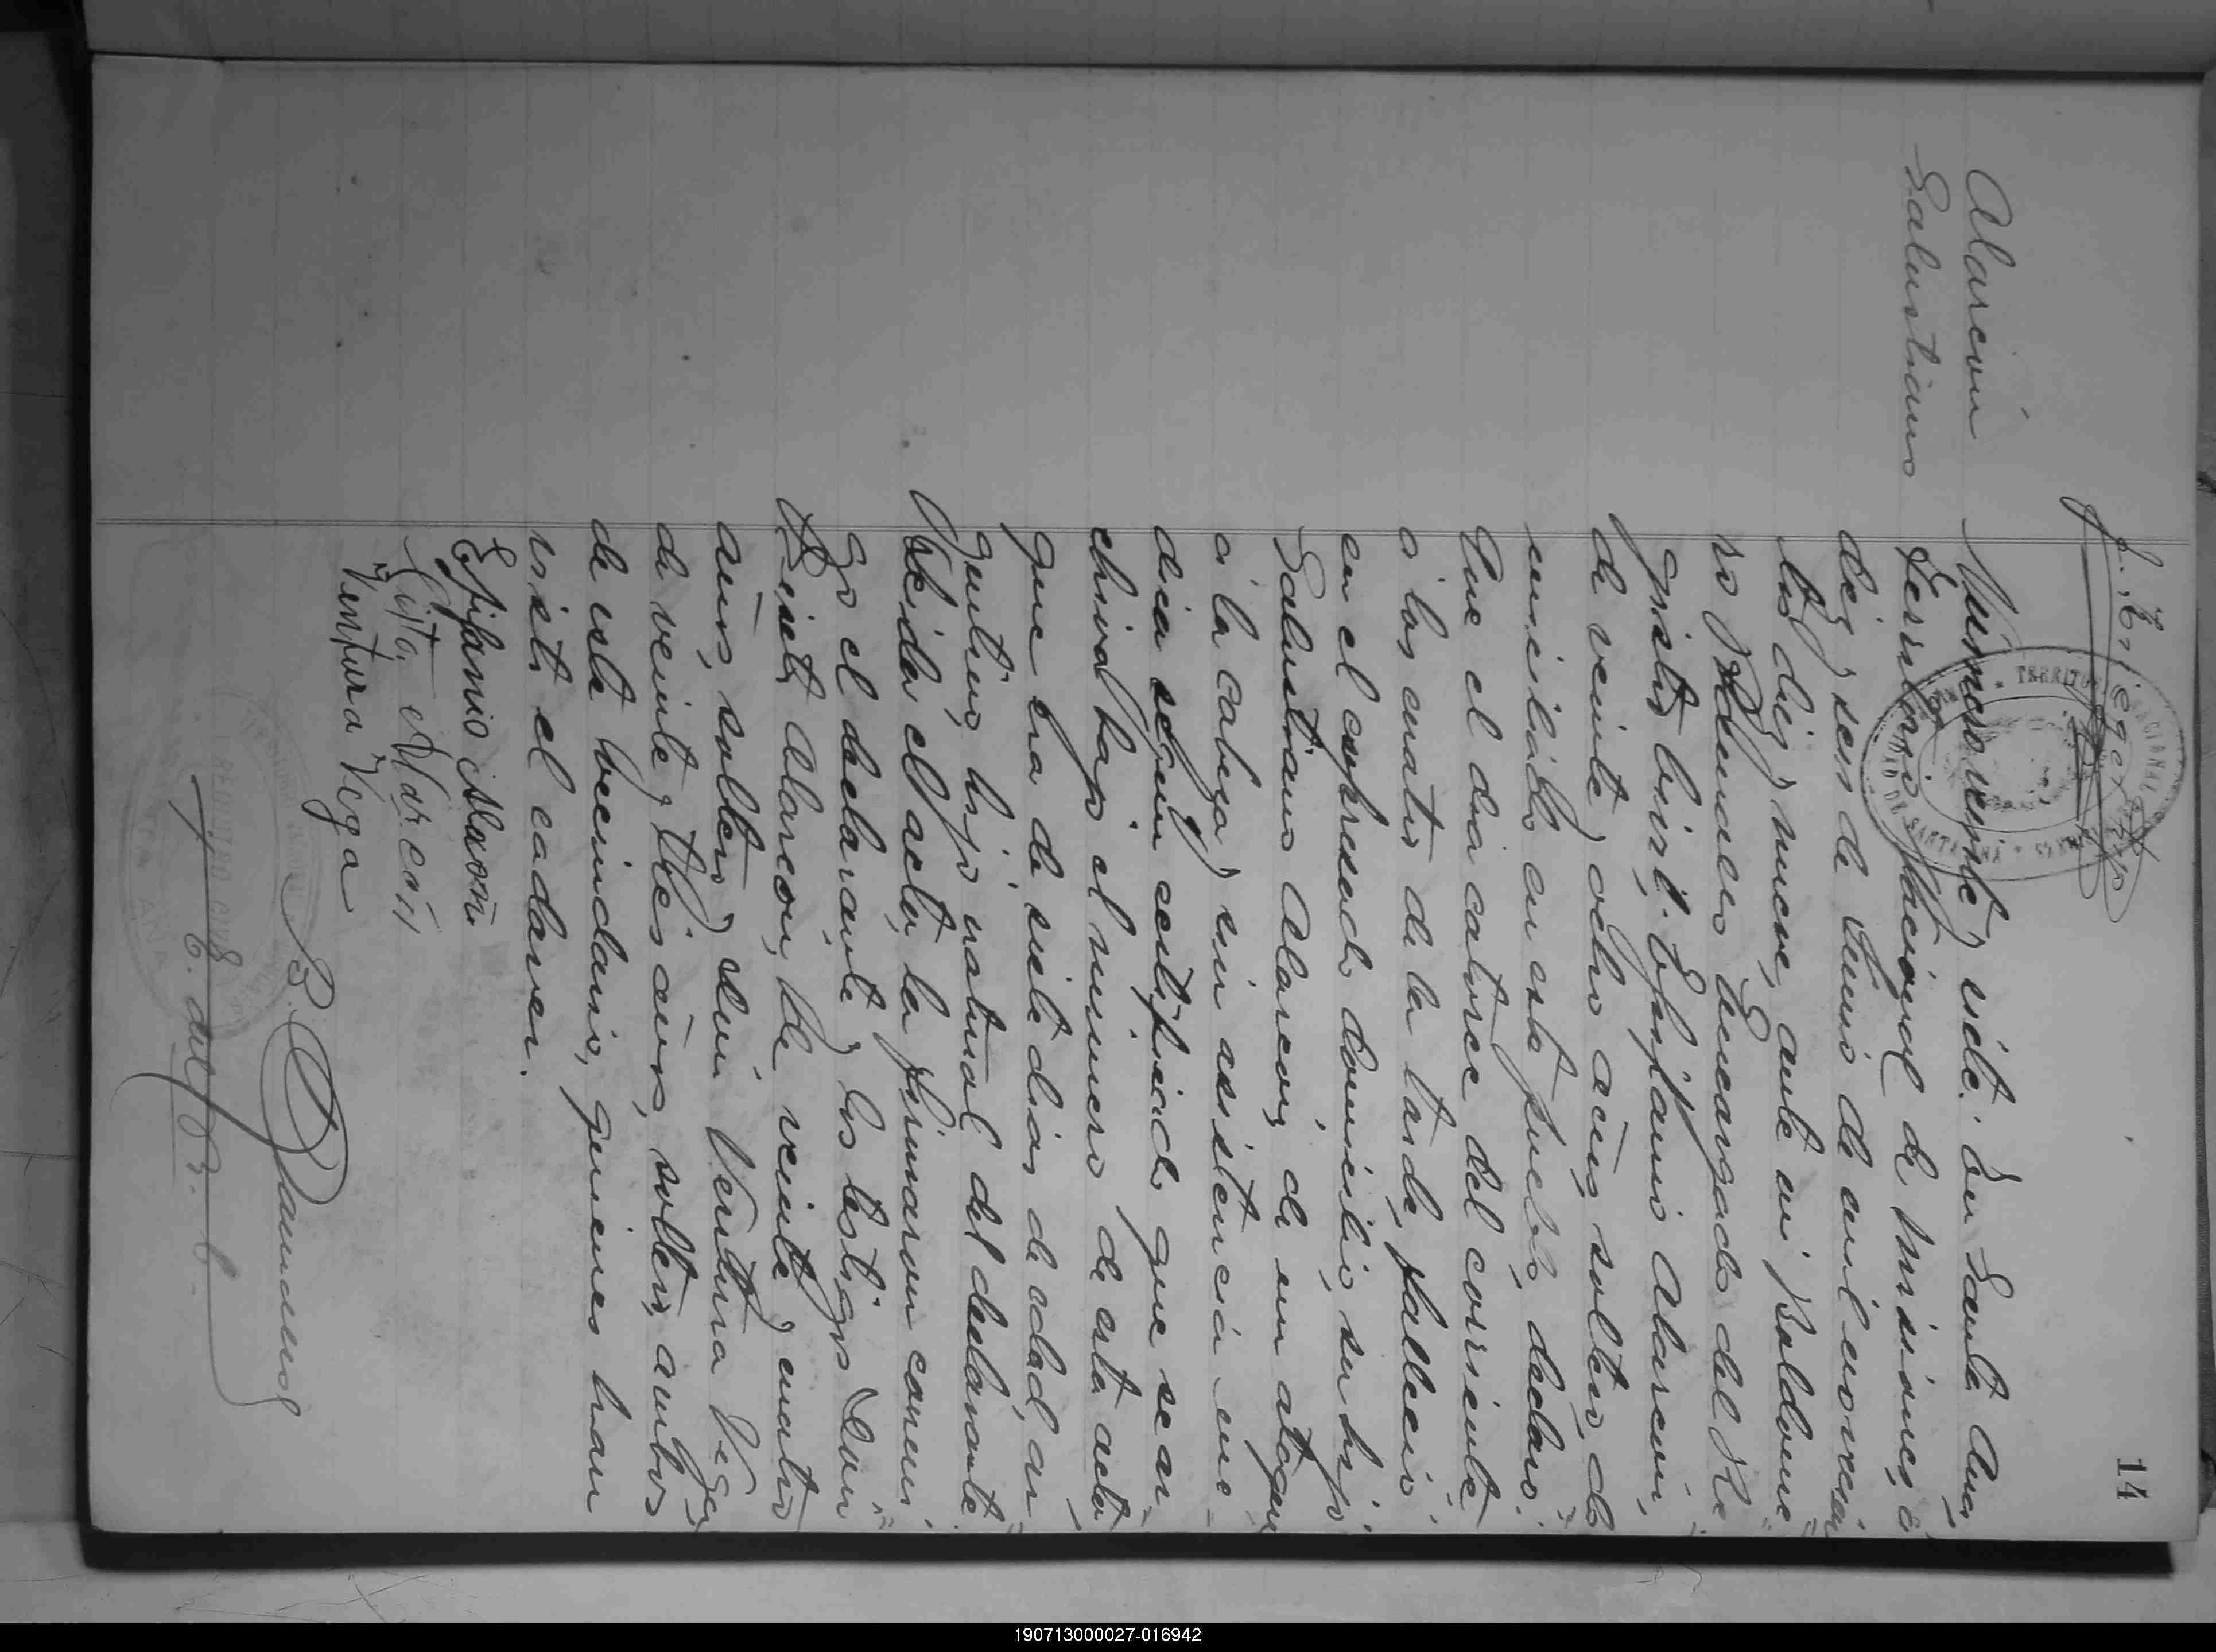 14
Alarcón
Salustiano
Número veinte y siete: En Santa Ana,
Territorio Nacional de Misiones, á
diez y seis de Junio de mil novecien
tos diez y nueve, ante mi Baldome
ro Encargado del Re
gistro Civil: Epifanio Alarcón,
de veinte y ocho años, soltero, do
miciliado en este pueblo, declaró:
Que el dia catorce del corriente
á las cuatro de la tarde, falleció
en el expresado domicilio, su hijo
Salustiano Alarcón, de un ataque
á la cabeza y sin asistencia me
dica según certificado que se ar
chiva bajo el número de esta acta
que era de siete dias de edad, ar
gentino, hijo natural del declarante
Leida el acta, la firmaron conmi
go el declarante y los testigos Don
Sixto Alarcon, de veinte y cuatro
años, soltero y don Ventura Vega
de veinte y tres años, soltero, ambos
de este vecindario, quienes han
visto el cadaver.
Epifanio Alarcón
Sisto Alarcón
Ventura Vega
B.
E. del R. C.
REGISTRO CIVIL
190713000027-016942